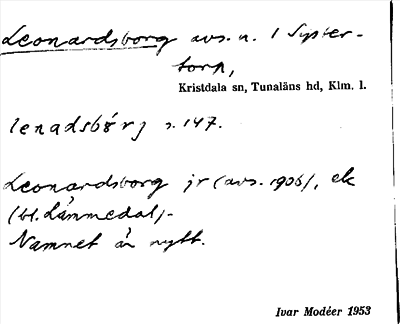 Leonardsborg avs. u. 1 Systertorp,
Kristdala sn, Tunaläns hd, Klm. l.
lenadsbórj s. 147.
Leonardsborg jr (avs. 1906), ek
(bl. Lämmedal)-
Namnet är nytt.
Ivar Modéer 1953